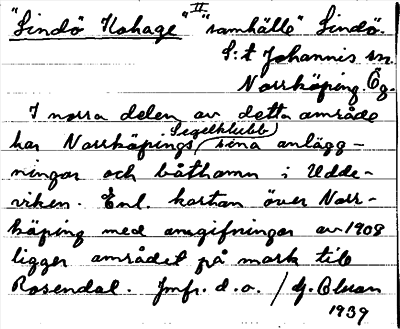 "Lindö Kohage" II "samhälle" Lindö.
S:t Johannis sn.
Norrköping. Ög.
I norra delen av detta område
har Norrköpings Segelklubb sina anlägg-
ningar och båthamn i Udde-
viken. Enl. kartan över Norr-
köping med omgifningar av 1908
ligger området på mark till
Rosendal. Jmfr. d.o. /
1939